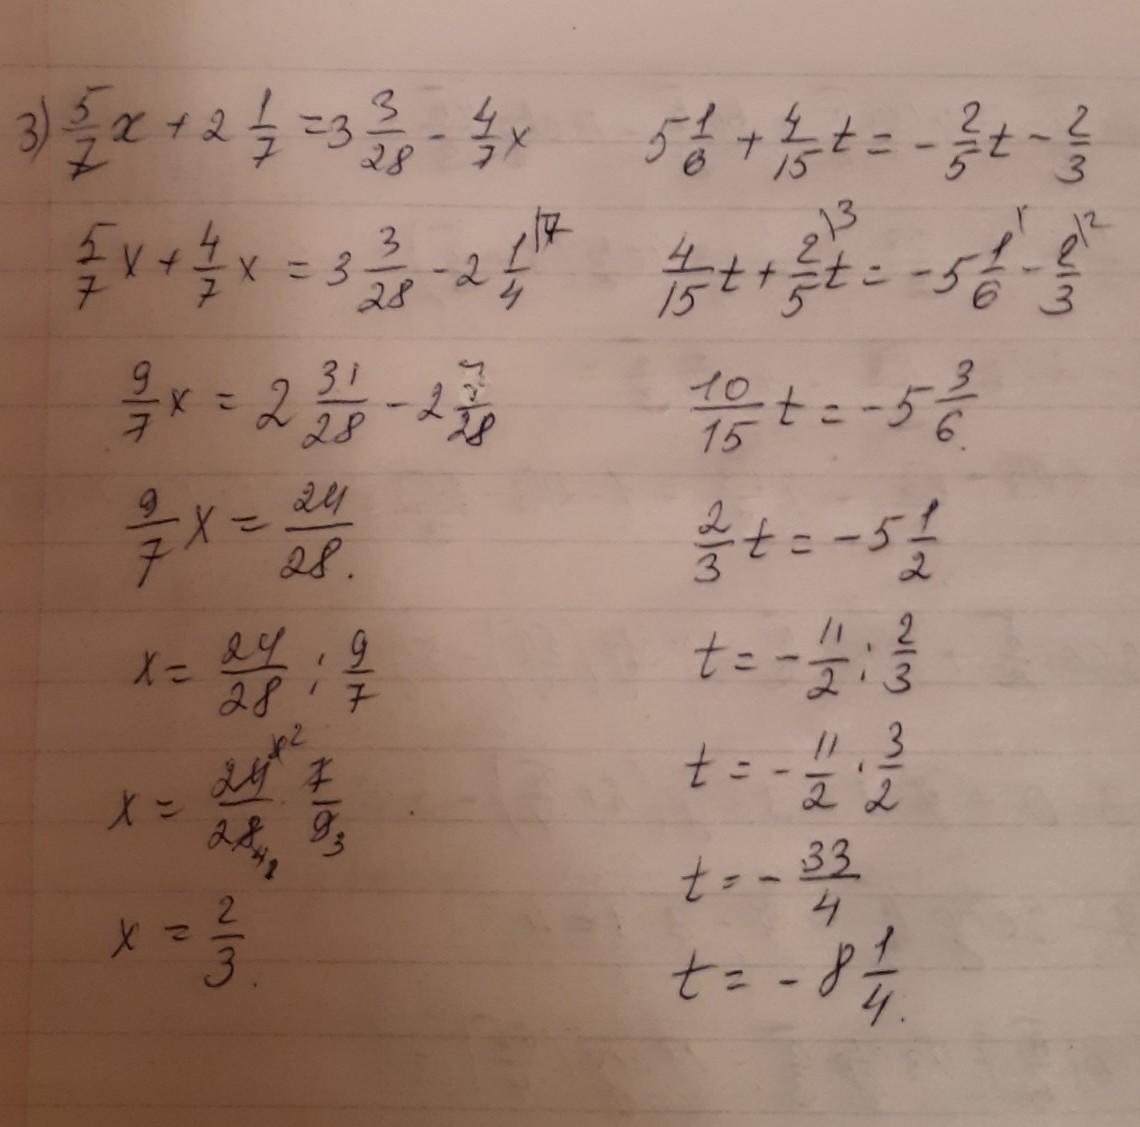 3) 5/7 x + 2 1/7 = 3 3/28 - 4/7 x
5/7 x + 4/7 x = 3 3/28 - 2 1/4 \7
9/7 x = 2 31/28 - 2 7/28
9/7 x = 24/28.
x = 24/28 : 9/7
x = 24/28 · 7/9 3
x = 2/3.
5 1/6 + 4/15 t = - 2/5 t - 2/3
4/15 t + 2/5 \3 t = - 5 1/6 \1 - 2/3 \2
10/15 t = - 5 3/6.
2/3 t = - 5 1/2
t = - 11/2 : 2/3
t = - 11/2 · 3/2
t = - 33/4
t = - 8 1/4.